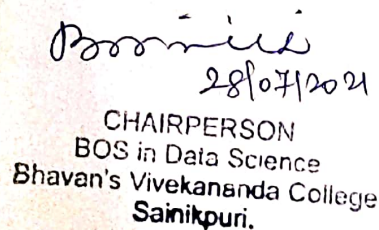 28/07/2021
CHAIRPERSON
BOS in Data Science
Bhavan's Vivekananda College
Sainikpuri.